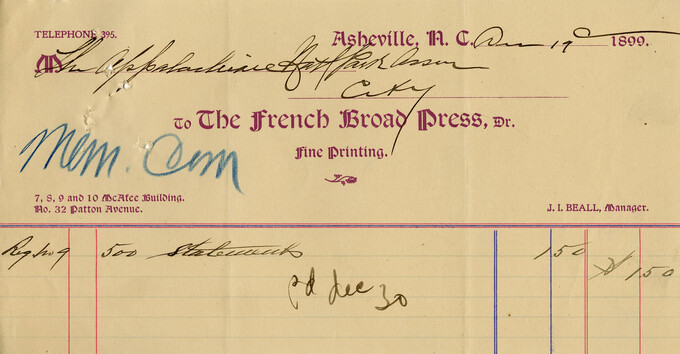 TELEPHONE 395.
Asheville, N. C. Dec 19 1899.
M The Appalachian Nat Park Assn
City
To The French Broad Press, Dr.
Mem. Com
Fine Printing.
7, 8, 9 and 10 McAfee Building.
No. 32 Patton Avenue.
J. I. BEALL, Manager.
500 Statements 150 150
pd dec 30